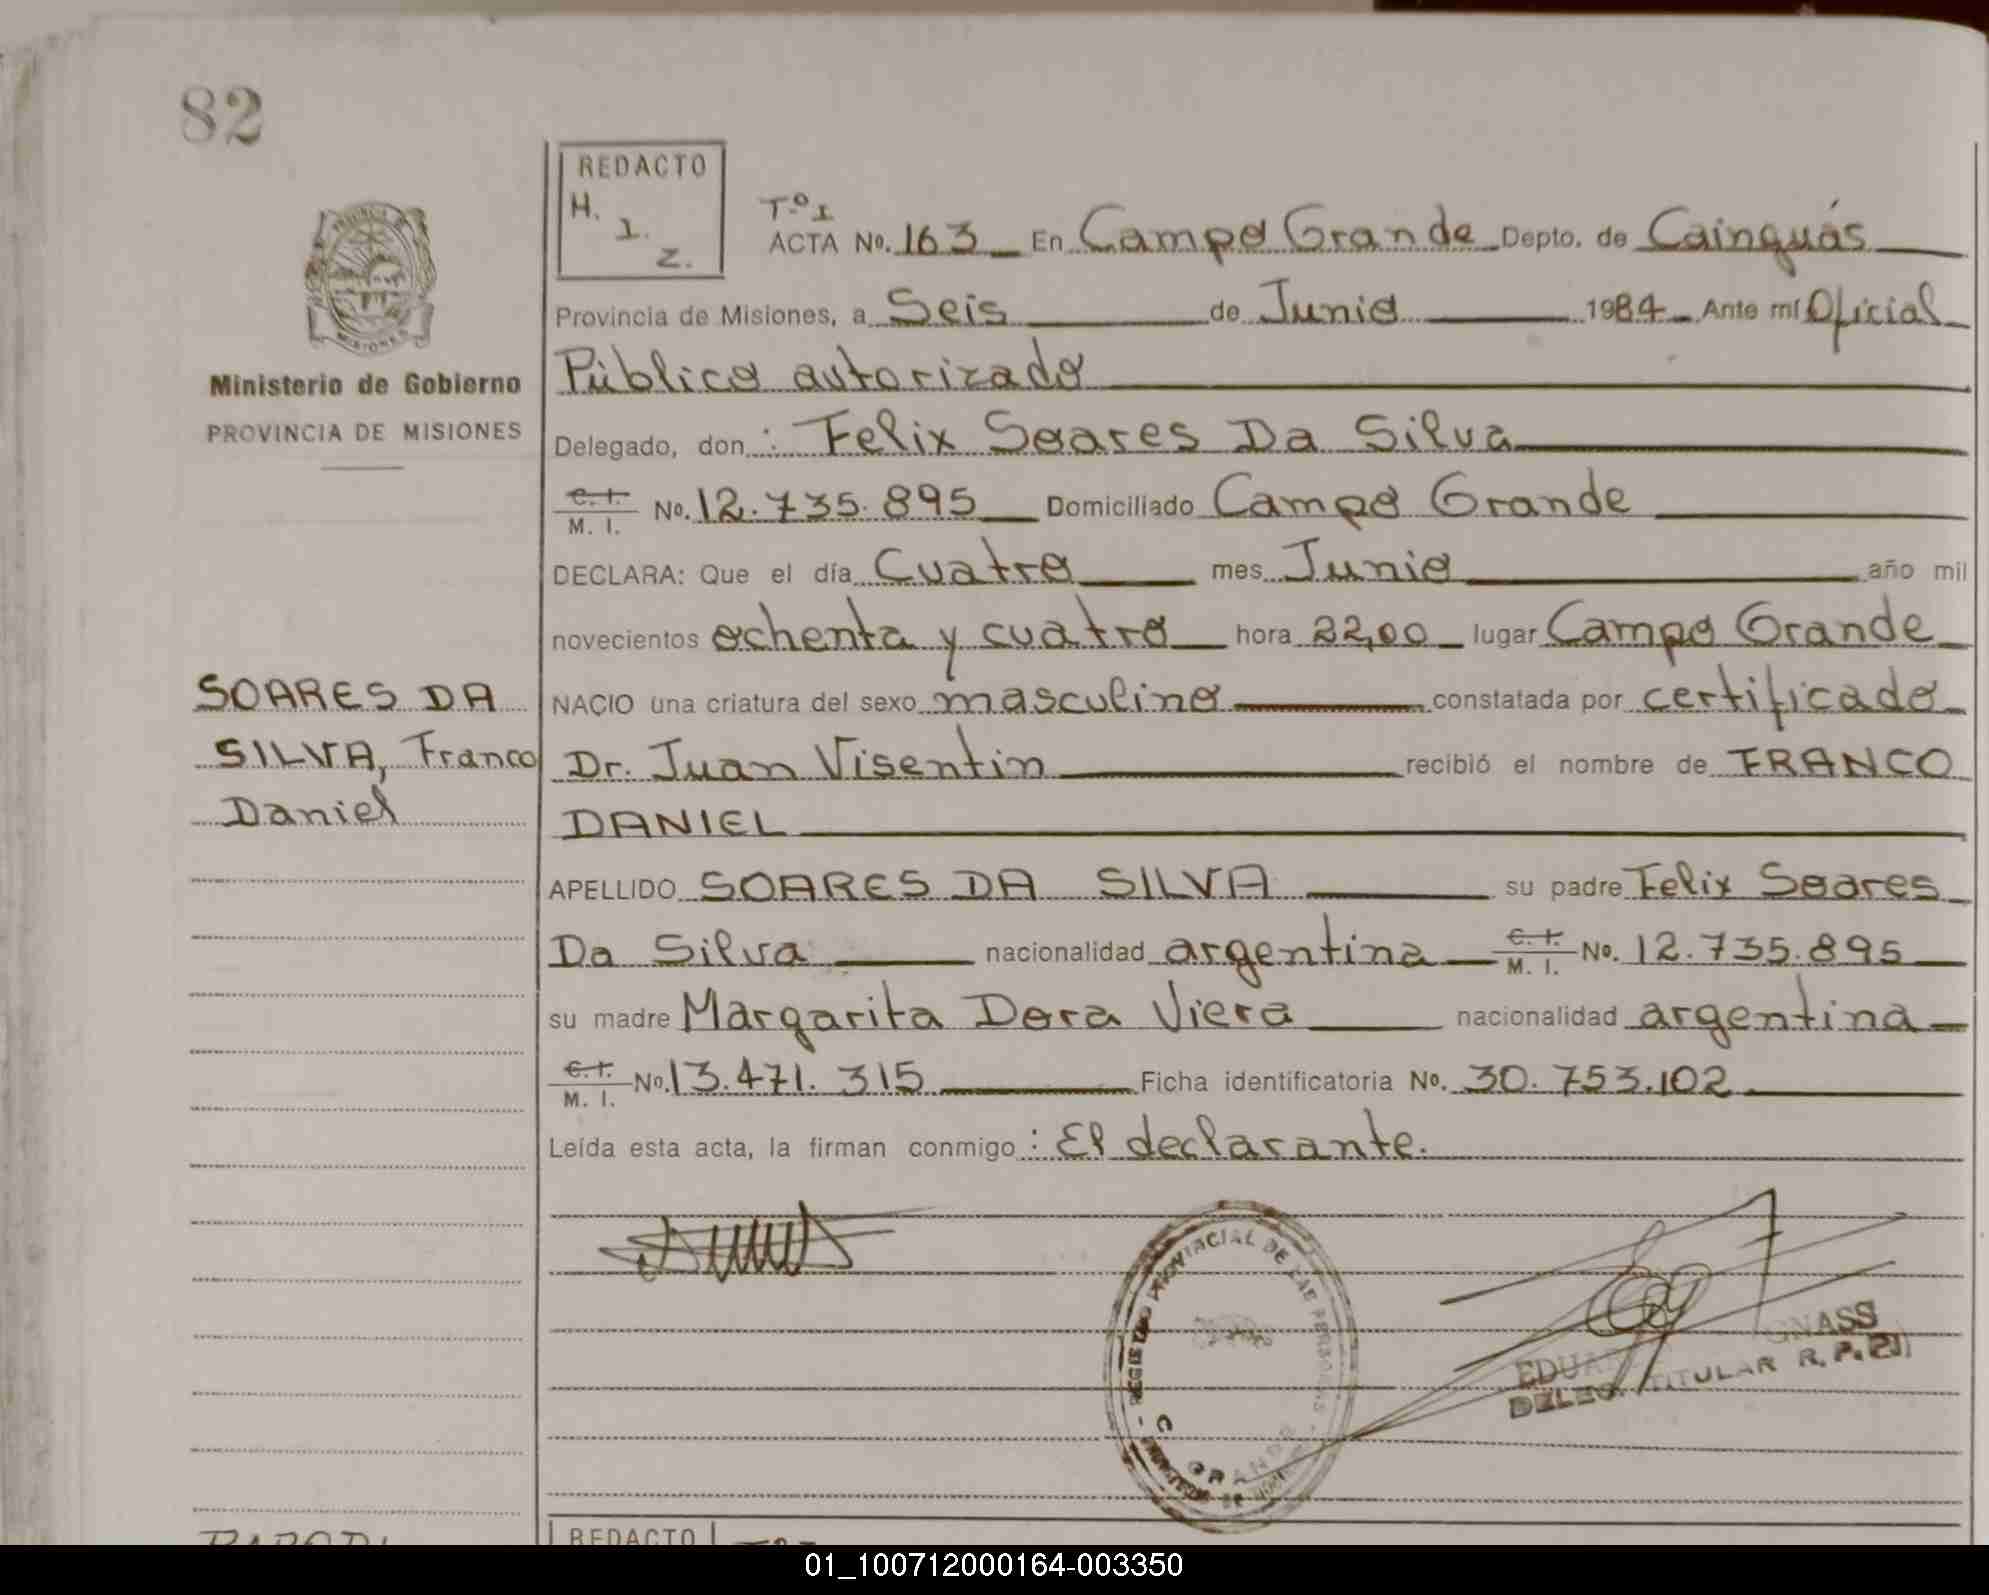 82
REDACTO
H.
I.
Z.
Tº I
ACTA No. 163 En Campo Grande Depto. de Cainguás
Provincia de Misiones, a Seis de Junio 1984 Ante mí Oficial
Público autorizado
Ministerio de Gobierno
PROVINCIA DE MISIONES
Delegado, don : Felix Soares Da Silva
C. I.
M. I. No. 12.735.895 Domiciliado Campo Grande
DECLARA: Que el día Cuatro mes Junio año mil
novecientos ochenta y cuatro hora 22,00 lugar Campo Grande
SOARES DA
SILVA, Franco
Daniel
NACIO una criatura del sexo masculino constatada por certificado
Dr. Juan Visentin recibió el nombre de FRANCO
DANIEL
APELLIDO SOARES DA SILVA su padre Felix Soares
Da Silva nacionalidad argentina C. I. M. I. No. 12.735.895
su madre Margarita Dora Viera nacionalidad argentina
C. I.
M. I. No. 13.471.315 Ficha identificatoria No. 30.753.102
Leída esta acta, la firman conmigo : El declarante.
REGISTRO PROVINCIAL DE LAS PERSONAS
GRANDE
TITULAR R. P.
REDACTO
01_100712000164-003350